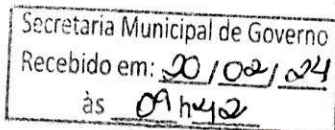 Secretaria Municipal de Governo
Recebido em: 20/02/24
às 09h42